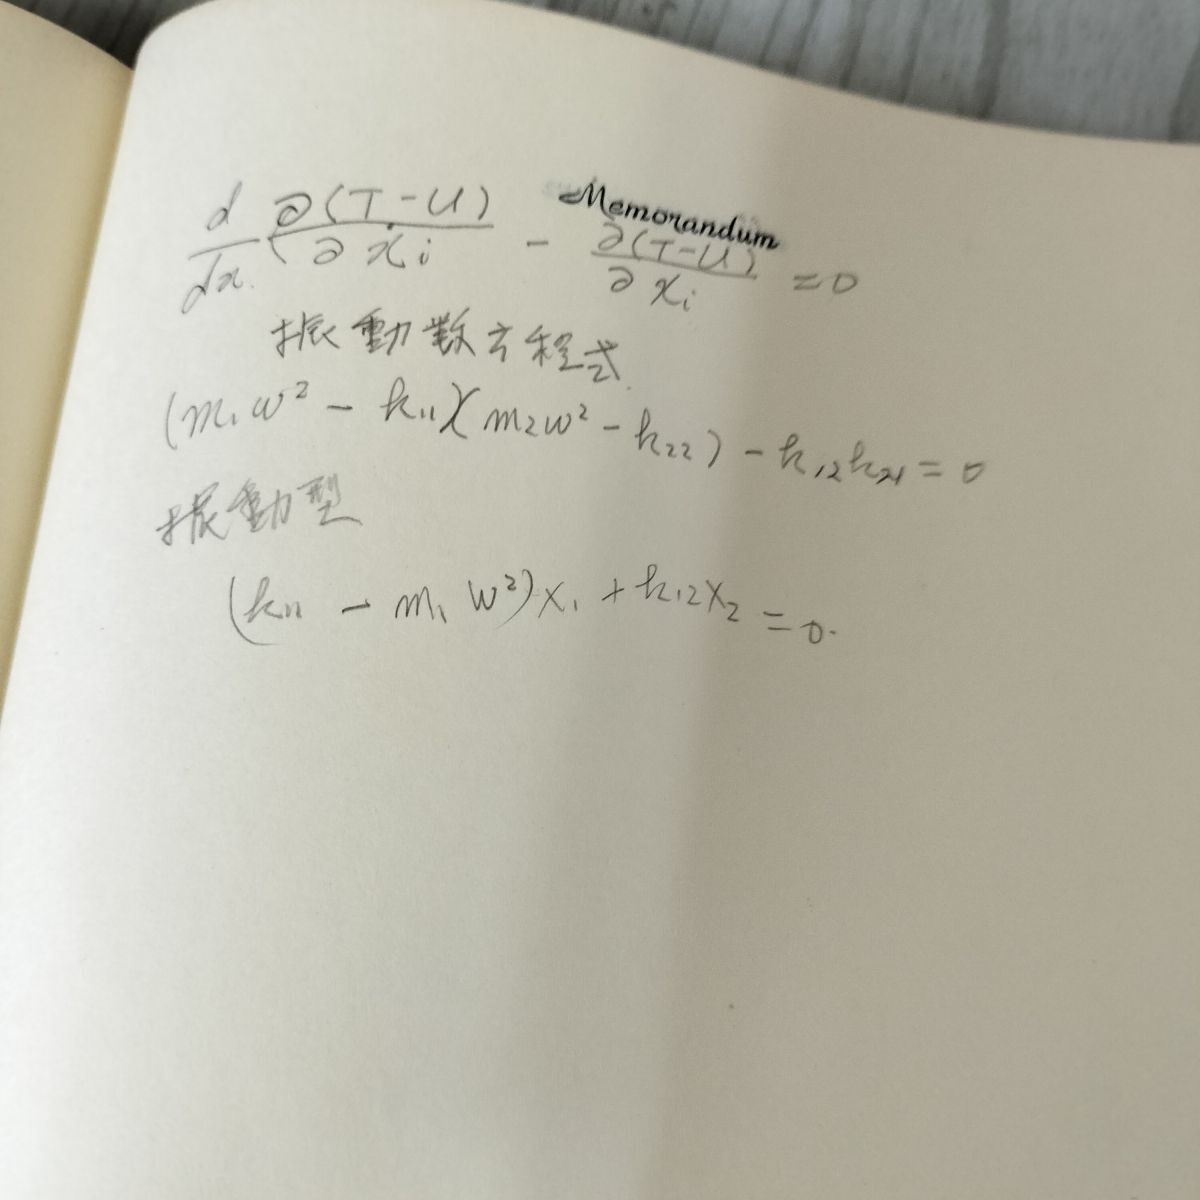 Memorandum
d/dx (∂(T-U)/∂ẋi - ∂(T-U)/∂xi = 0
振動数方程式
(m₁ω² - k₁₁)(m₂ω² - k₂₂) - k₁₂k₂₁ = 0
振動型
(k₁₁ - m₁ω²)x₁ + k₁₂x₂ = 0.